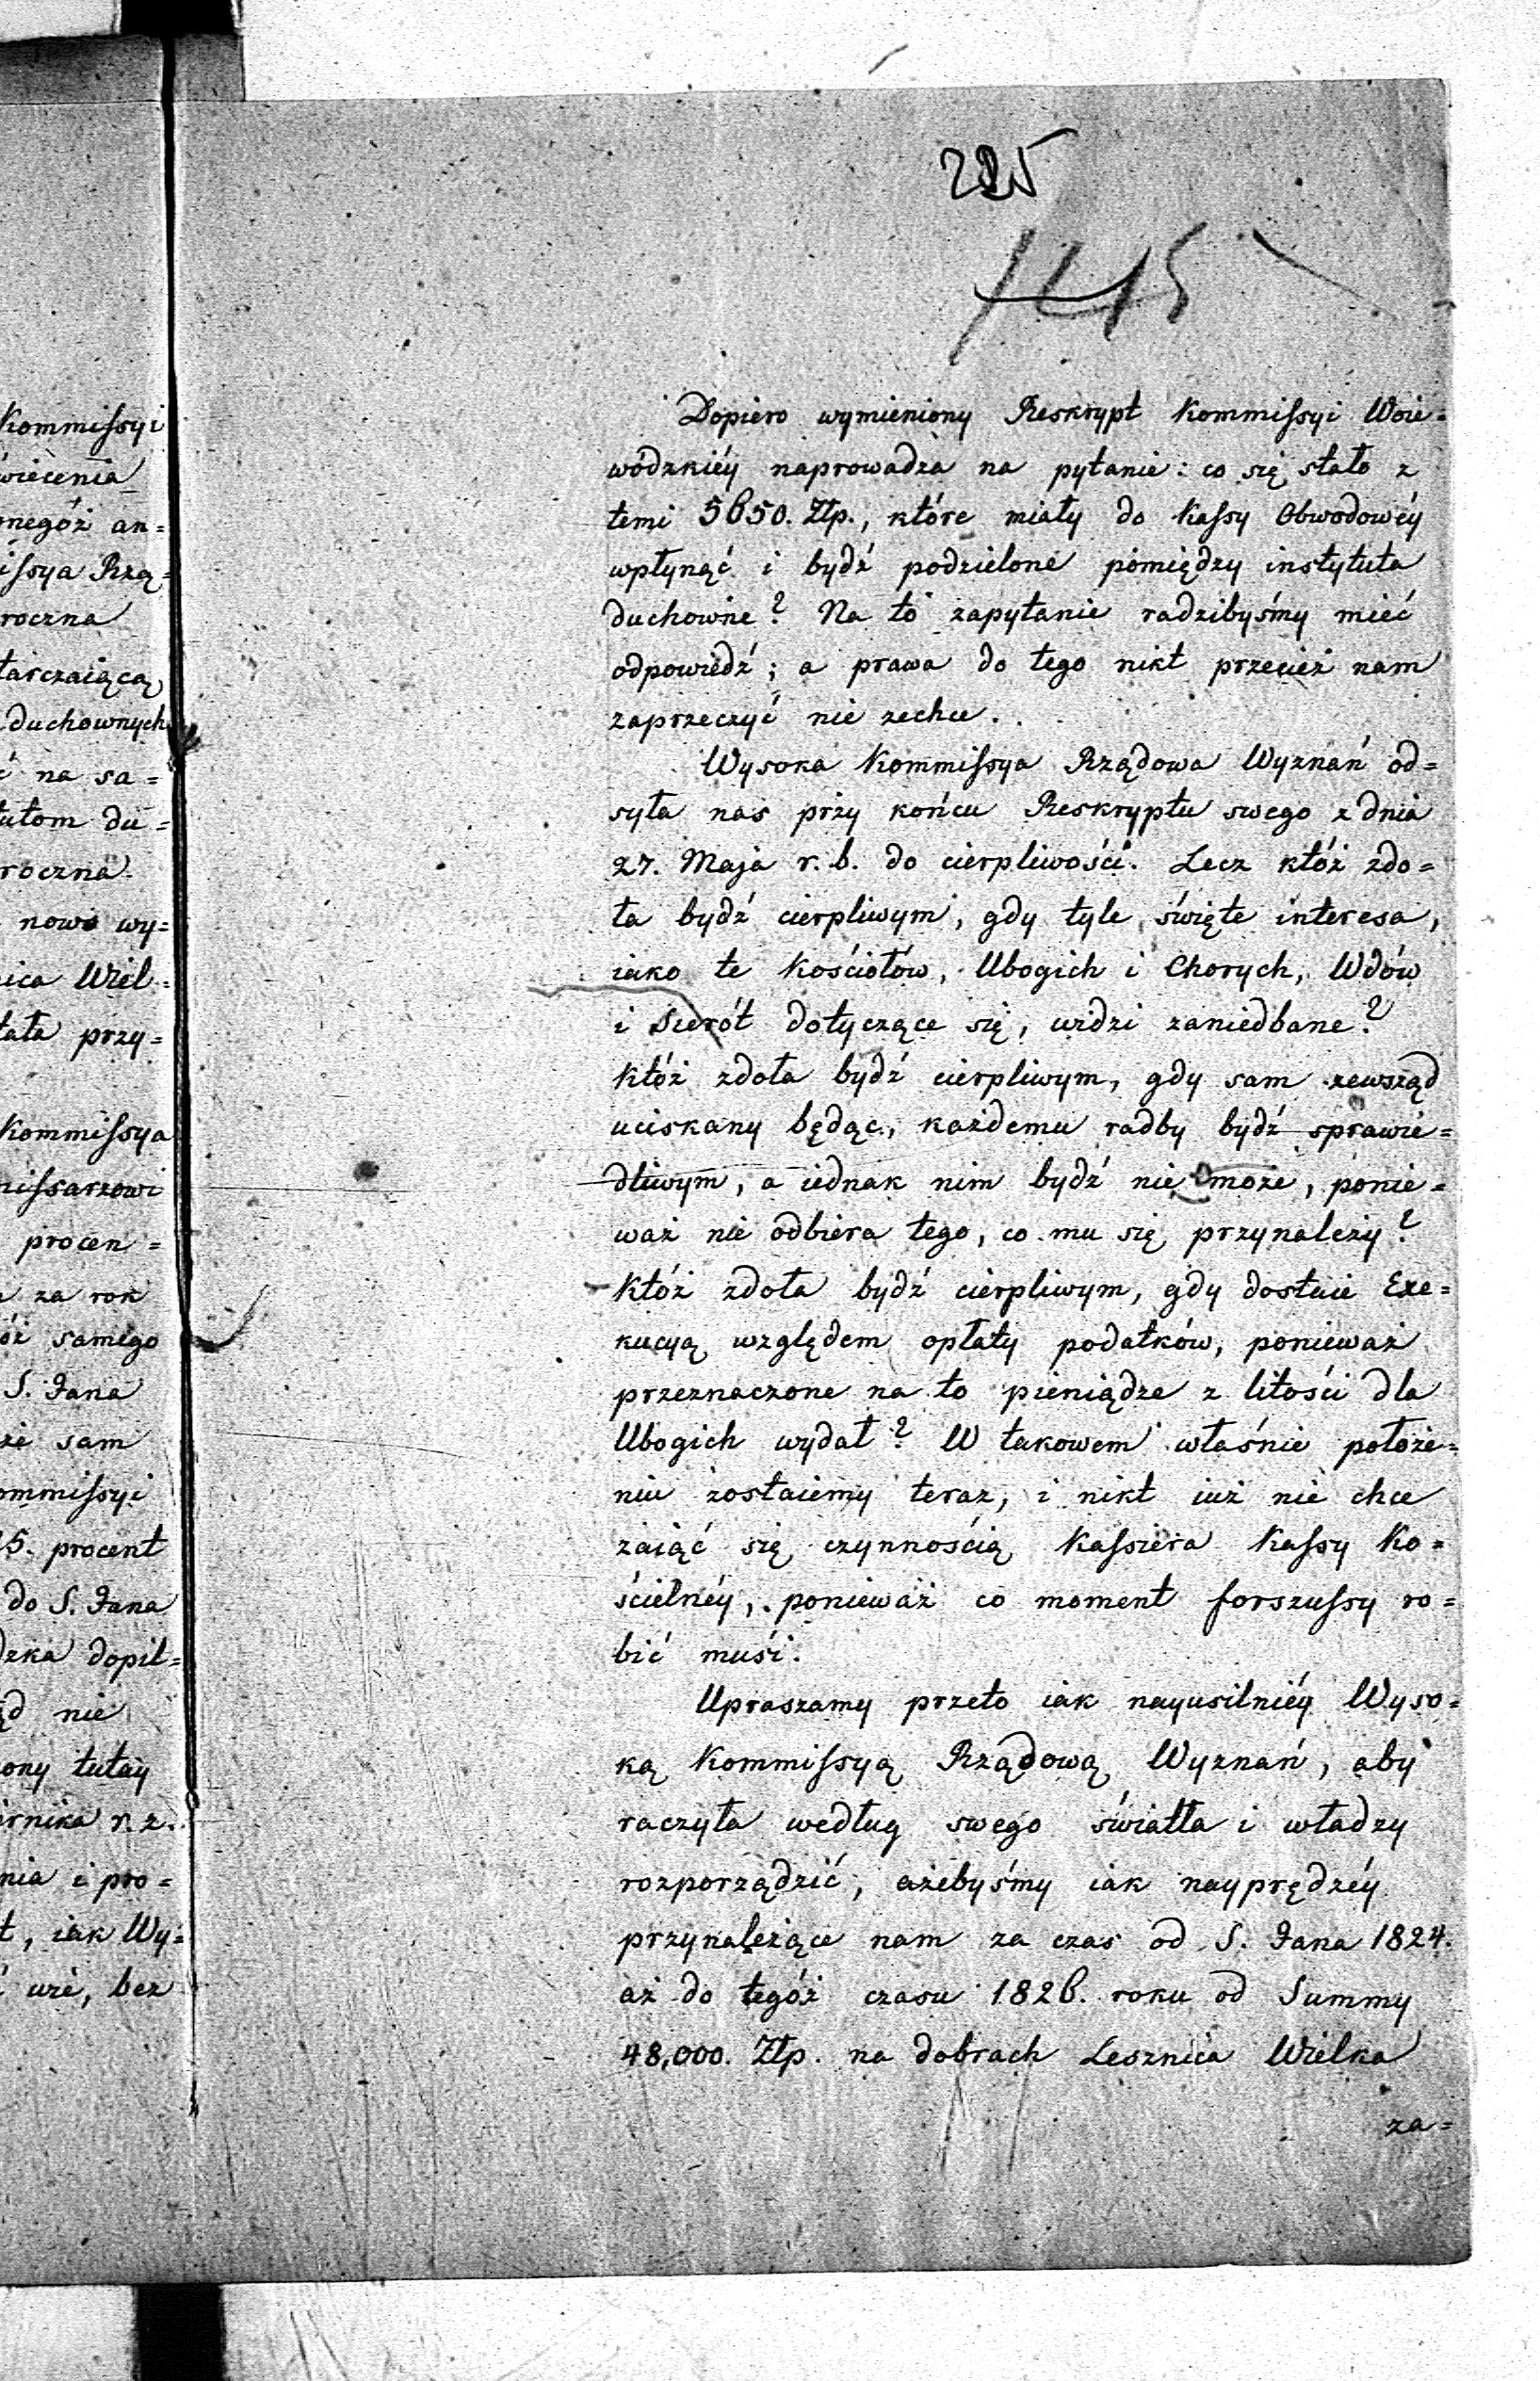 225
Kommissyi
wiecenia
onegóż an=
issya Rzą=
roczna
tarczaiącą
duchownych
ć na sa=
tutom du=
roczna
nowo wy=
ica Wiel=
tała przy=
Kommissya
missarzowi
procen=
za rok
óż samego
S. Jana
że sam
ommissyi
5. procent
do S. Jana
dzka dopil=
ąd nie
ony tutay
ornika r. z.
nia i pro=
t, iak Wy=
uie, bez
Dopiero wymieniony Reskrypt Kommissyi Woie=
wódzkiéy naprowadza na pytanie: co się stało z
temi 5650. Złp., które miały do Kassy Obwodowéy
wpłynąć i bydź podzielone pomiędzy instytuta
duchowne? Na to zapytanie radzibyśmy mieć
odpowiedź; a prawa do tego nikt przecież nam
zaprzeczyć nie zechce.
Wysoka Kommissya Rządowa Wyznań od=
syła nas przy końcu Reskryptu swego z dnia
27. Maja r. b. do cierpliwości. Lecz któż zdo=
ła bydź cierpliwym, gdy tyle święte interesa,
iako te Kościołów, Ubogich i Chorych, Wdów
i Sierót dotyczące się, widzi zaniedbane?
Któż zdoła bydź cierpliwym, gdy sam zewsząd
uciskany będąc, każdemu radby bydź sprawie=
dliwym, a iednak nim bydź nie może, ponie=
waż nie odbiera tego, co mu się przynależy?
Któż zdoła bydź cierpliwym, gdy dostaie Exe=
kucyą względem opłaty podatków, ponieważ
przeznaczone na to pieniądze z litości dla
Ubogich wydał? W takowem właśnie położe=
niu zostaiemy teraz, i nikt iuż nie chce
zaiąć się czynnością Kassiera Kassy Ko=
ścielnéy, ponieważ co moment forszussy ro=
bić musi.
Upraszamy przeto iak nayusilniéy Wyso=
ką Kommissyą Rządową Wyznań, aby
raczyła według swego światła i władzy
rozporządzić, ażebyśmy iak nayprędzéy
przynależące nam za czas od S. Jana 1824.
aż do tegóż czasu 1826. roku od Summy
48,000. Złp. na dobrach Lesznica Wielka
za=